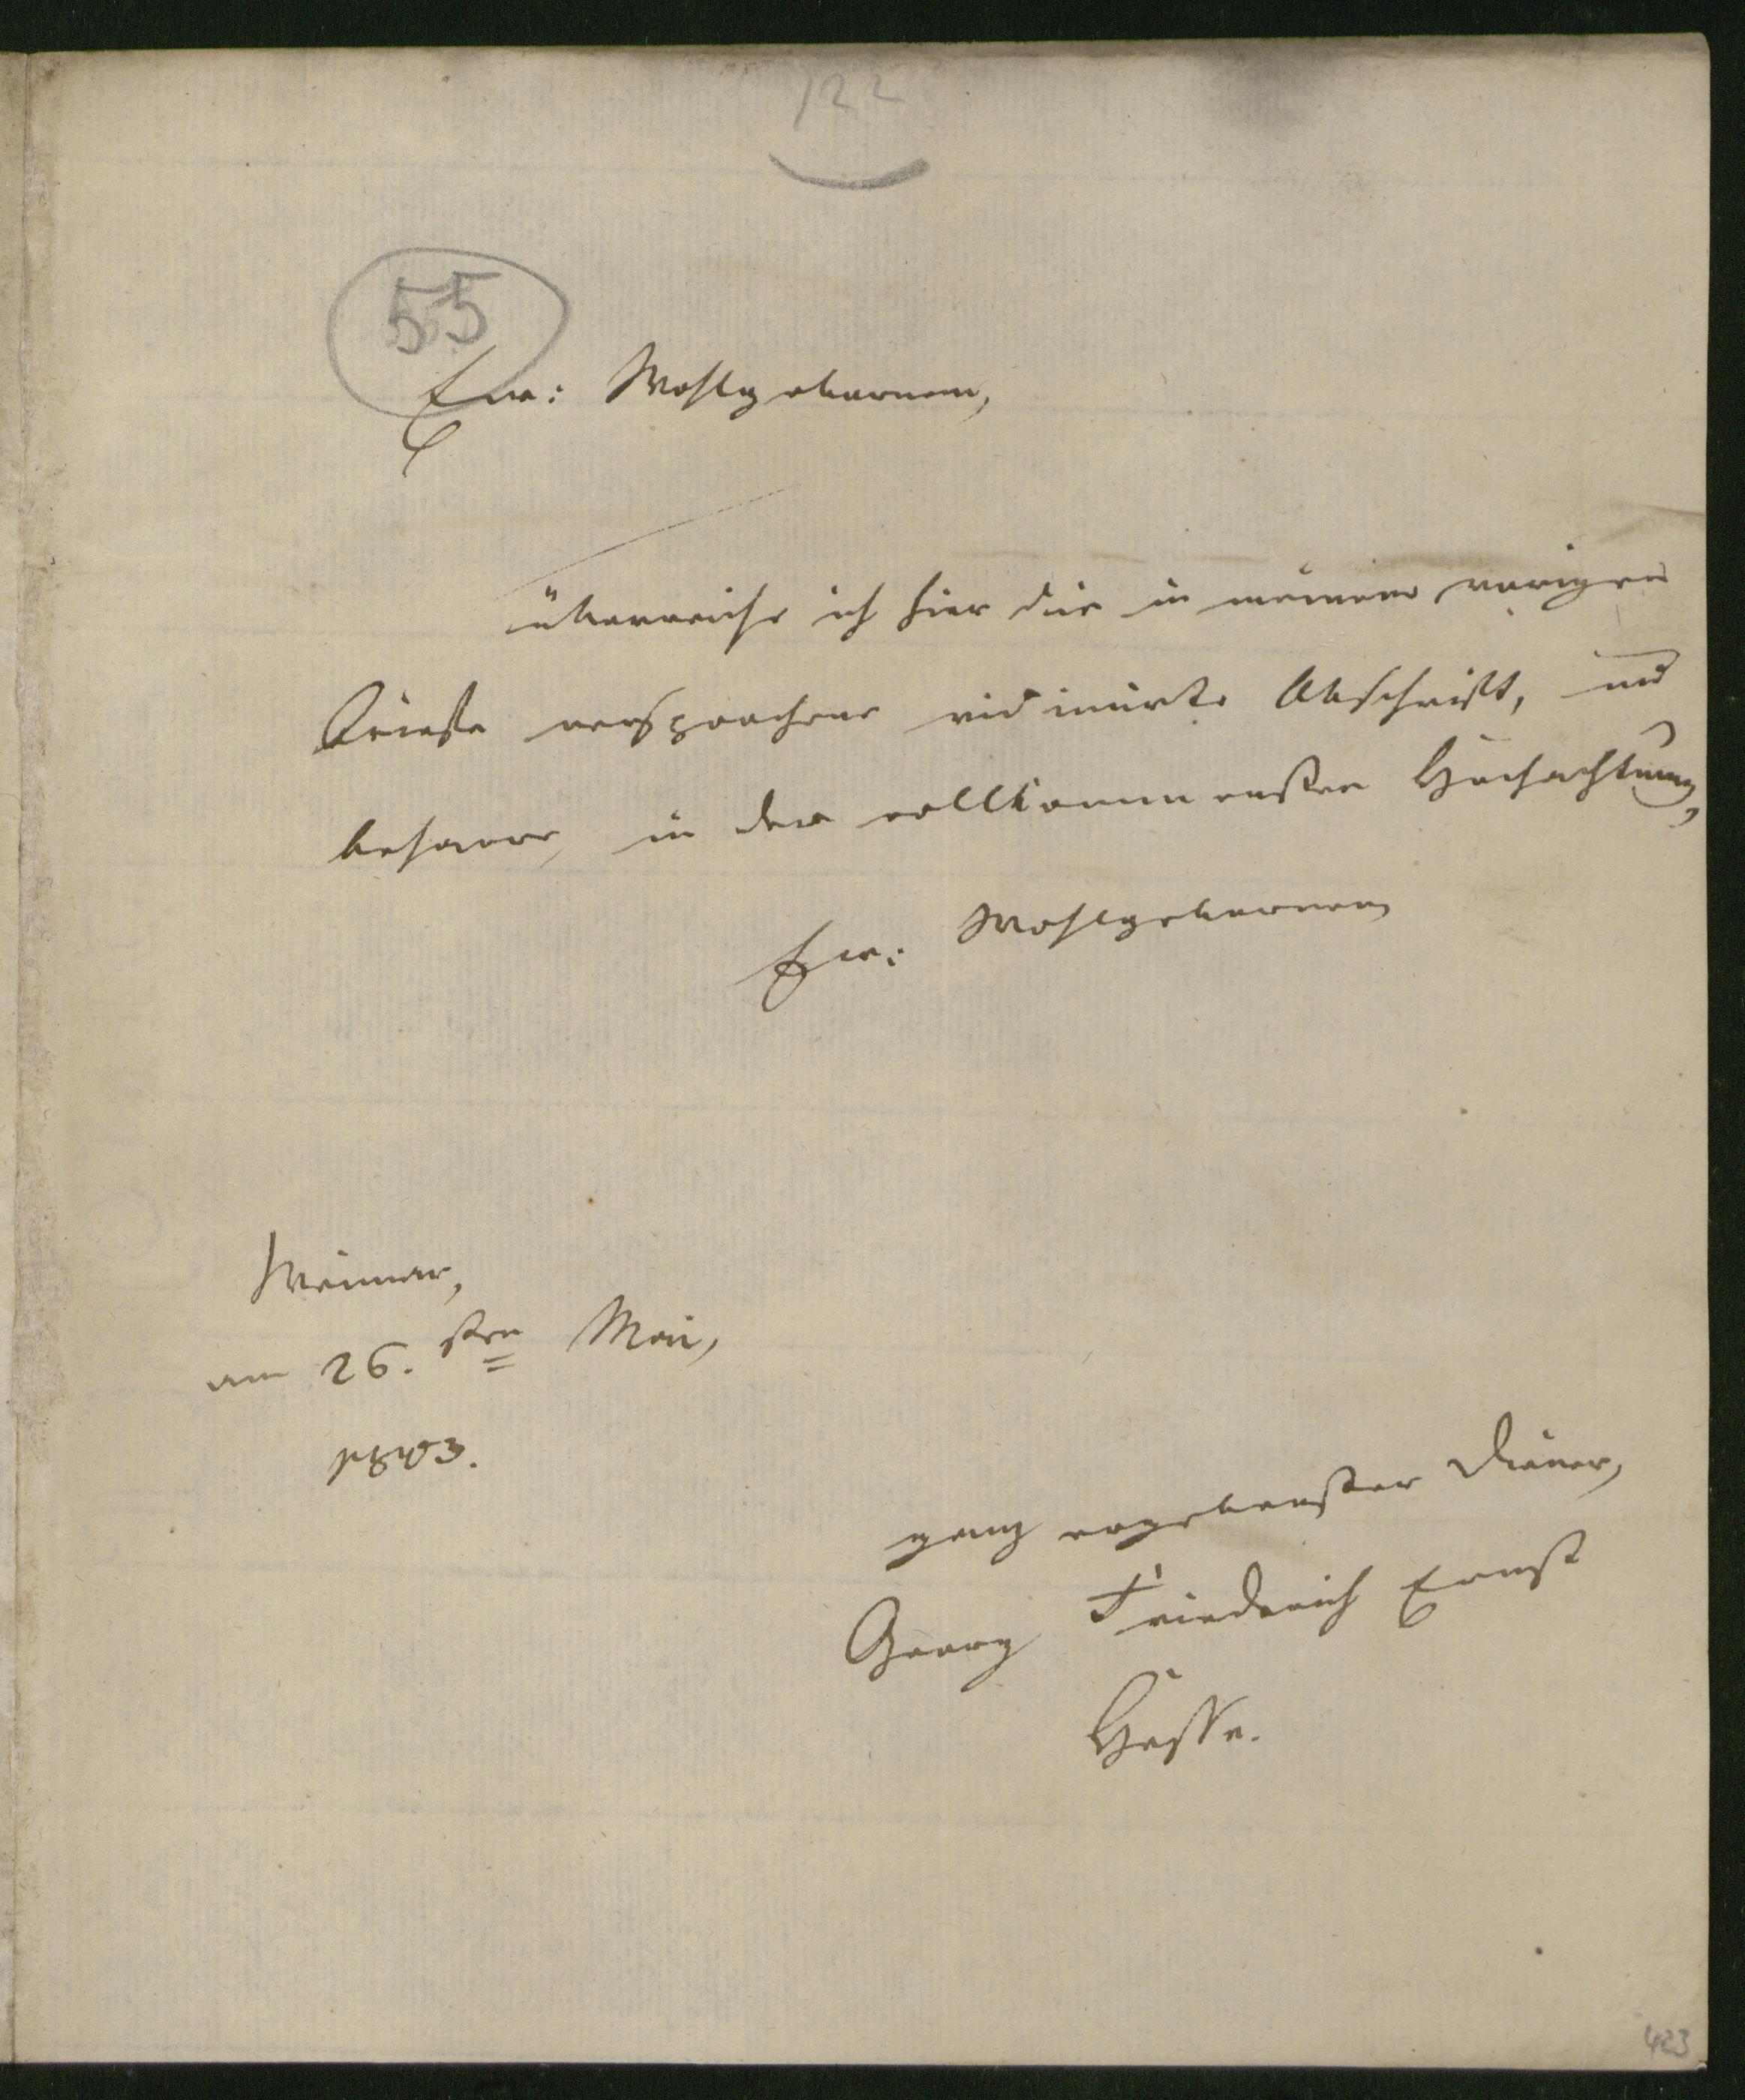 122
55
Ew: Wohlgebornen,
überreiche ich hier die in meinem vorigen
Briefe versprochene vidimirte Abschrift, und
beharre, in der vollkommensten Hochachtung,
Ew: Wohlgebornen
Weimar,
am 26.sten Mai,
1803.
ganz ergebenster Diener,
Georg Friederich Ernst
Hesse.
423